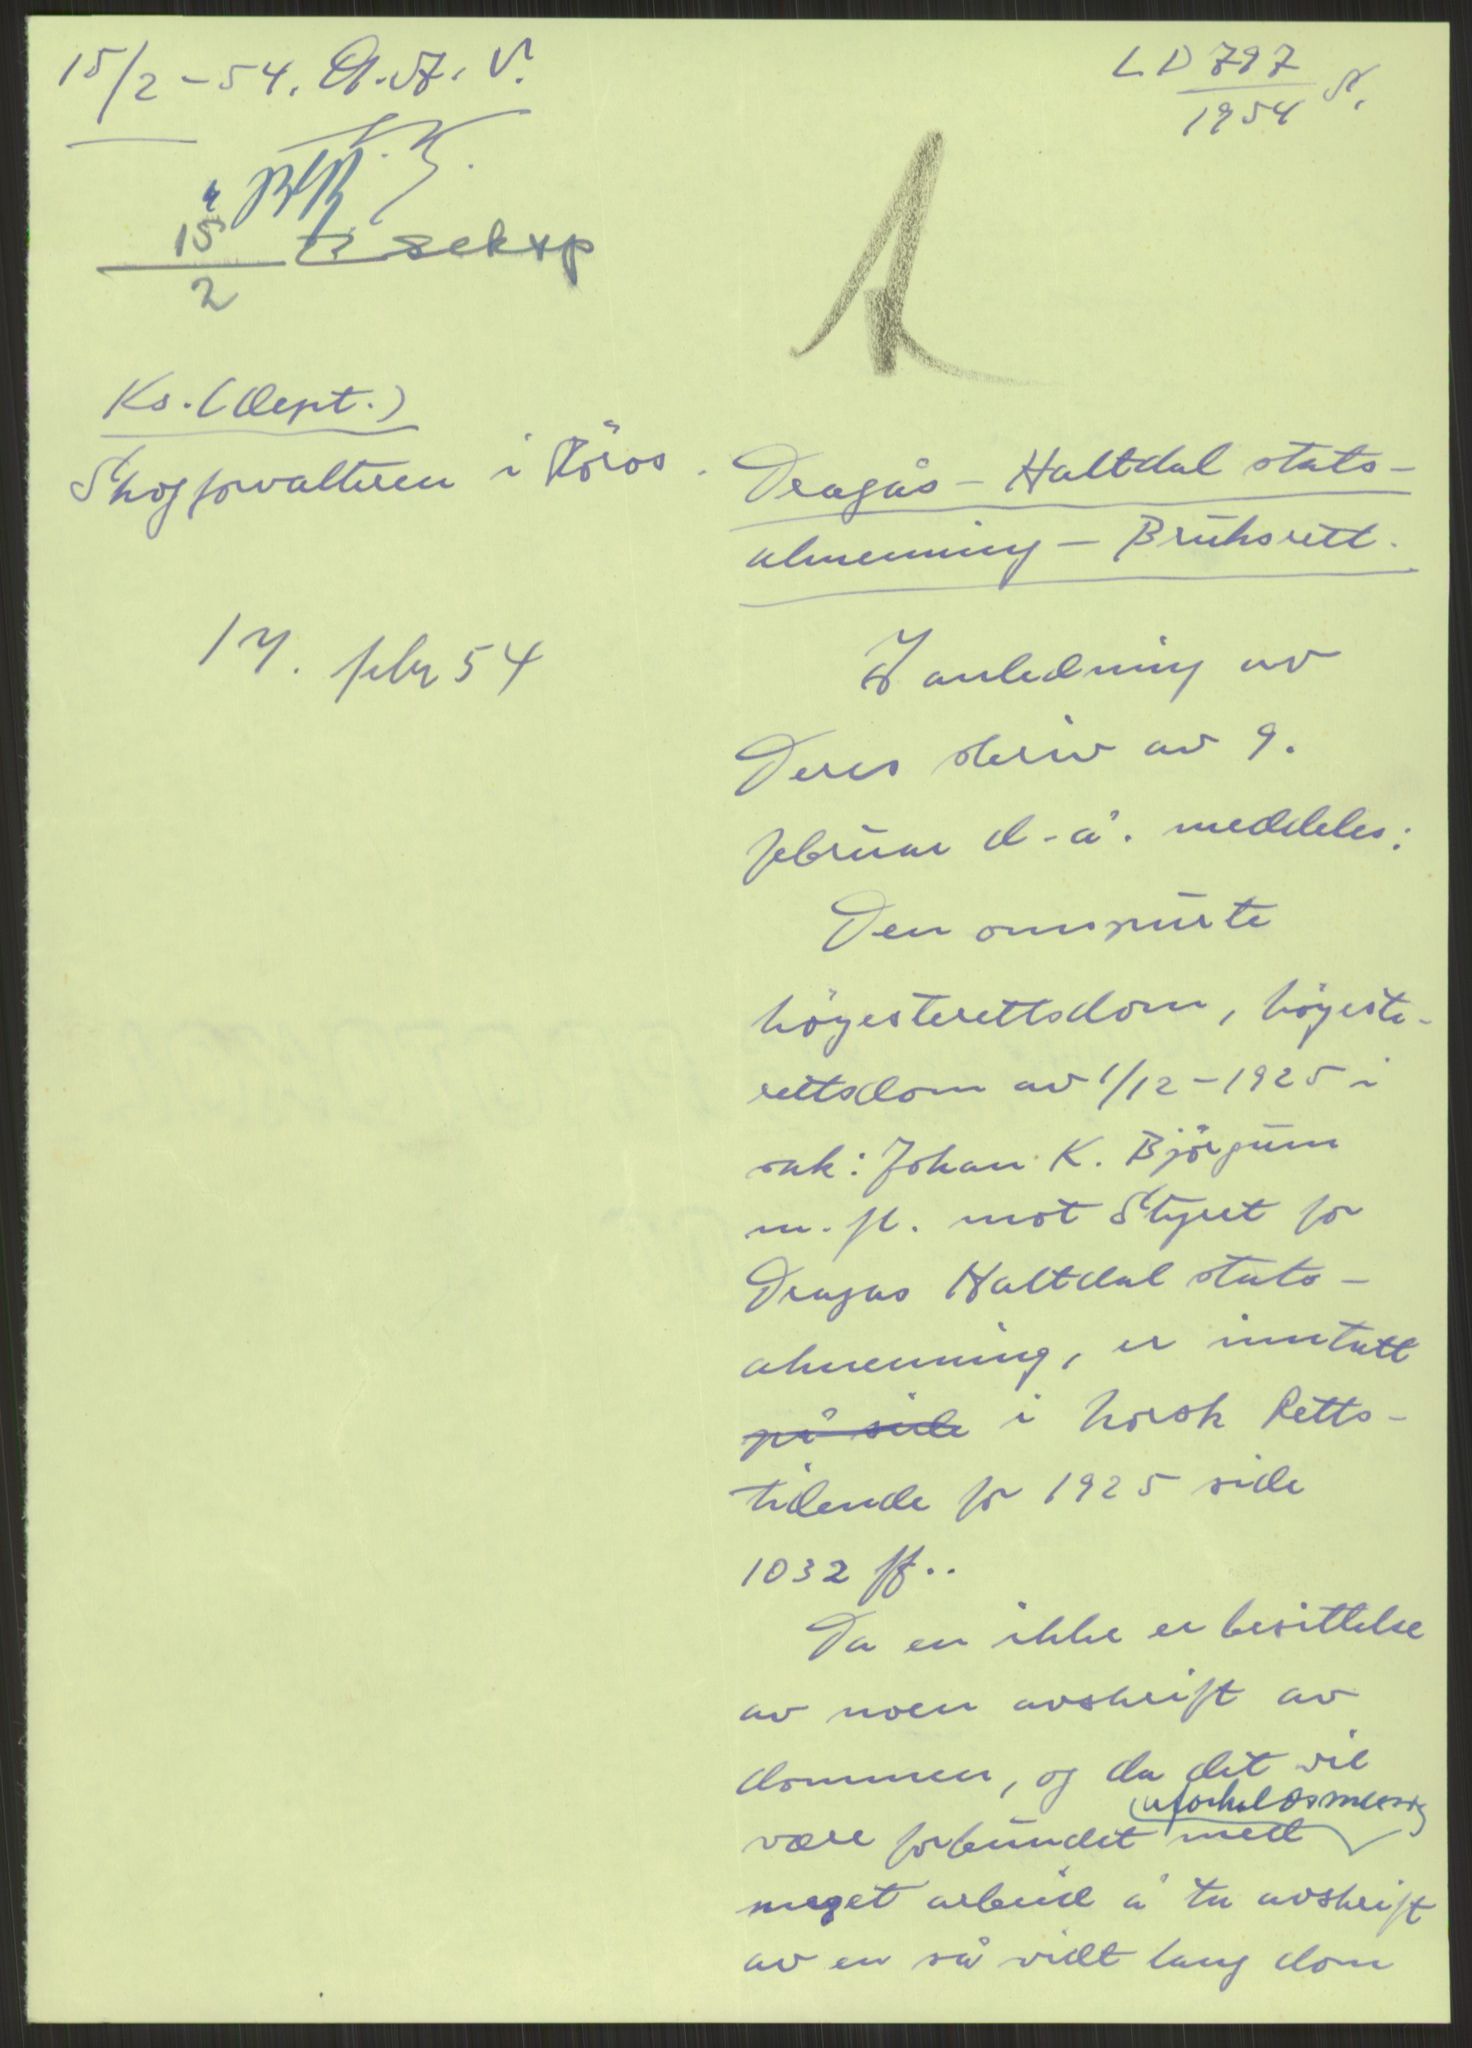 15/2 - 54.
LD 797
1954
15
2
sekxp
Ks. (Dept.)
Skogforvalteren i Röros.
17. febr 54
Dragås - Haltdal stats-
almenning - Bruksrett.
I anledning av
Deres skriv av 9.
februar d-å. meddeles:
Den omspurte
höyesterettsdom, höyeste-
rettsdom av 1/12 - 1925 i
sak: Johan K. Björgum
m. fl. mot Styret for
Dragås Haltdal stats-
almenning, er inntatt
på side i Norsk Retts-
tidende for 1925 side
1032 ff..
Da en ikke er besittelse
av noen avskrift av
dommen, og da det vil
uforholdsmessig
være forbundet med
meget arbeid å ta avskrift
av en så vidt lang dom